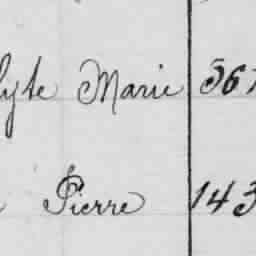 lyte Marie 367
Pierre 143